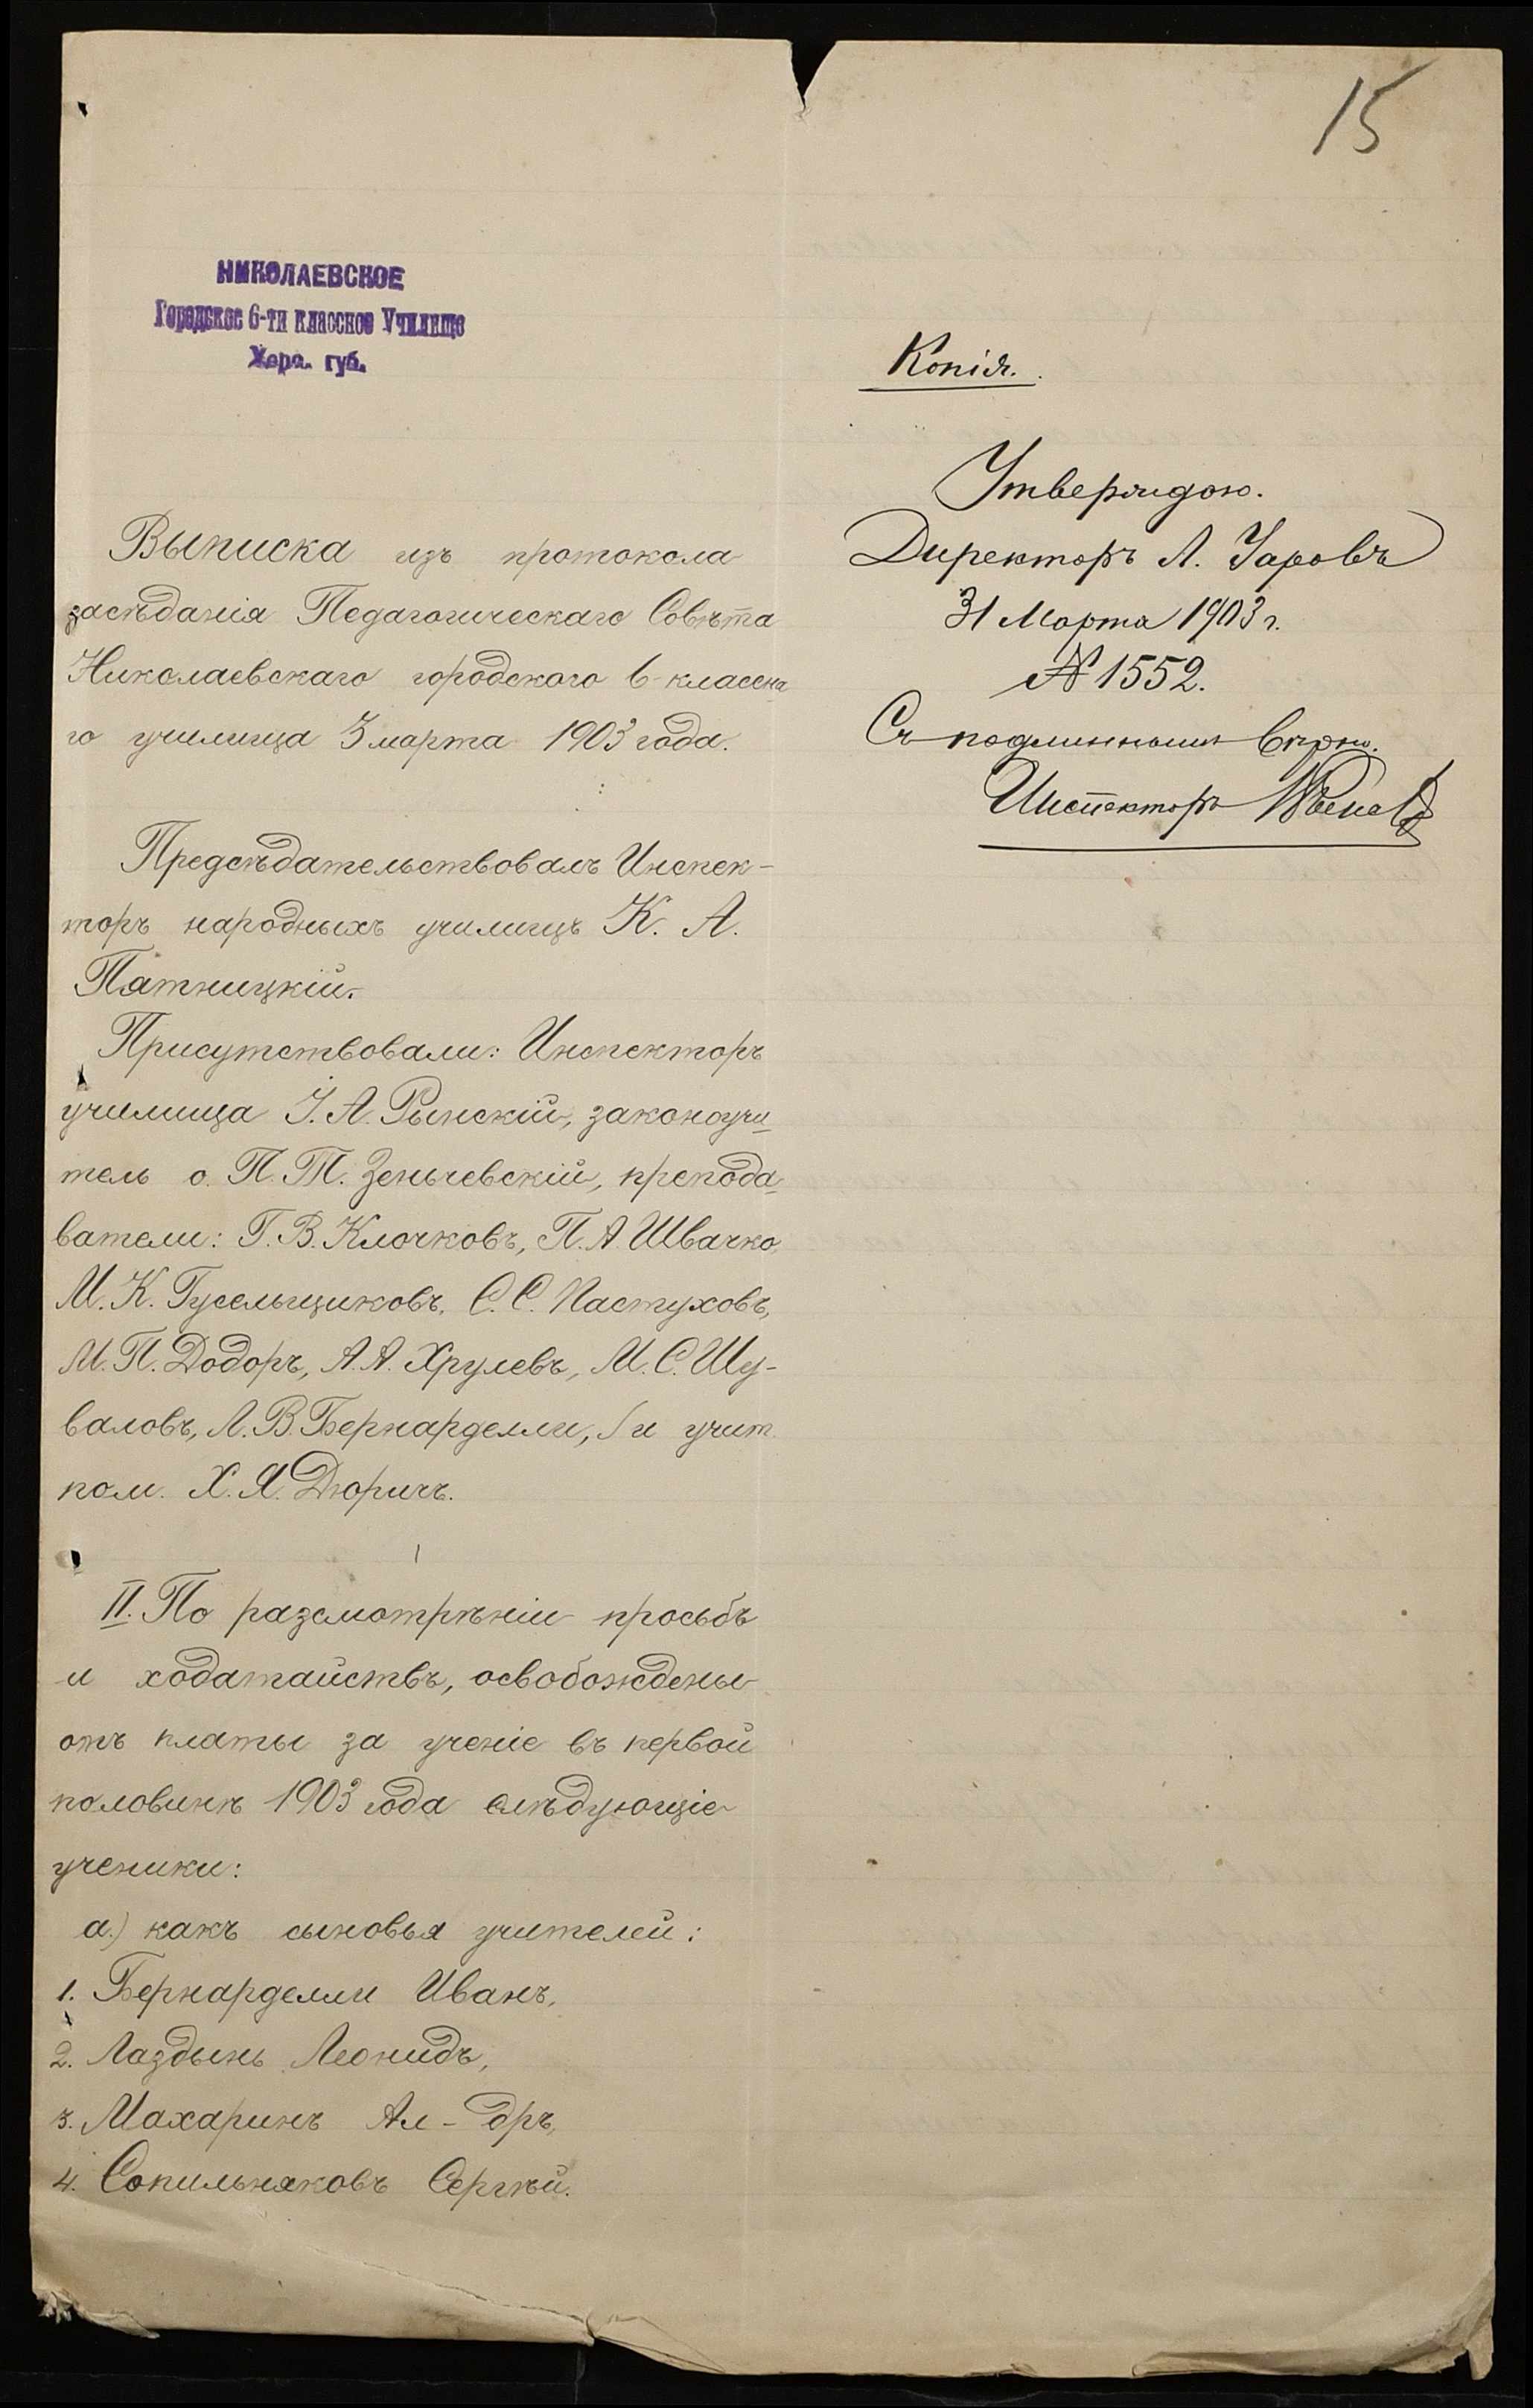 15
НИКОЛАЕВСКОЕ
Городское 6-ти классное Училище
Херс. губ.
Копія.
Утверждаю.
Директоръ А. Уаровъ
31 Марта 1903 г.
№ 1552.
Съ подлиннымъ вѣрно.
Инспекторъ
Выписка изъ протокола
засѣданія Педагогическаго Совѣта
Николаевскаго городского 6-классна
го училища 3 марта 1903 года.
Предсѣдательствовалъ Инспек-
торъ народныхъ училищъ К. А.
Пятницкій.
Присутствовали: Инспекторъ
училища І. А. Рынскій, законоучи
тель о. П. Т. Зенычевскій, препода-
ватели: Г. В. Клочковъ, П. А. Швачко,
М. К. Гусельщиковъ, С. С. Пастуховъ,
М. П. Додоръ, А. А. Хрулевъ, М. С. Шу-
валовъ, Л. В. Бернарделли, и учит.
пом. Х. Я. Дюричъ.
II. По разсмотрѣніи просьбъ
и ходатайствъ, освобождены
отъ платы за ученіе въ первой
половинѣ 1903 года слѣдующіе
ученики:
а) какъ сыновья учителей:
1. Бернарделли Иванъ,
2. Лаздынь Леонидъ,
3. Махаринъ Ал-дръ,
4. Сопильняковъ Сергѣй.